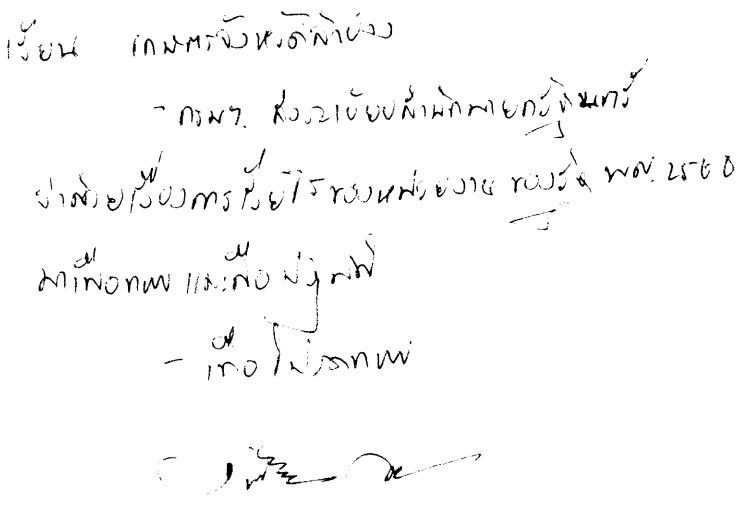 เรียน เกษตรจังหวัดลำปาง
- กรมฯ ส่งระเบียบสำนักนายกรัฐมนตรี
ว่าด้วยเรื่องการ ของหน่วยงาน ของรัฐ พ.ศ. 2560
มาเพื่อทราบ และถือปฏิบัติ
- เพื่อโปรดทราบ